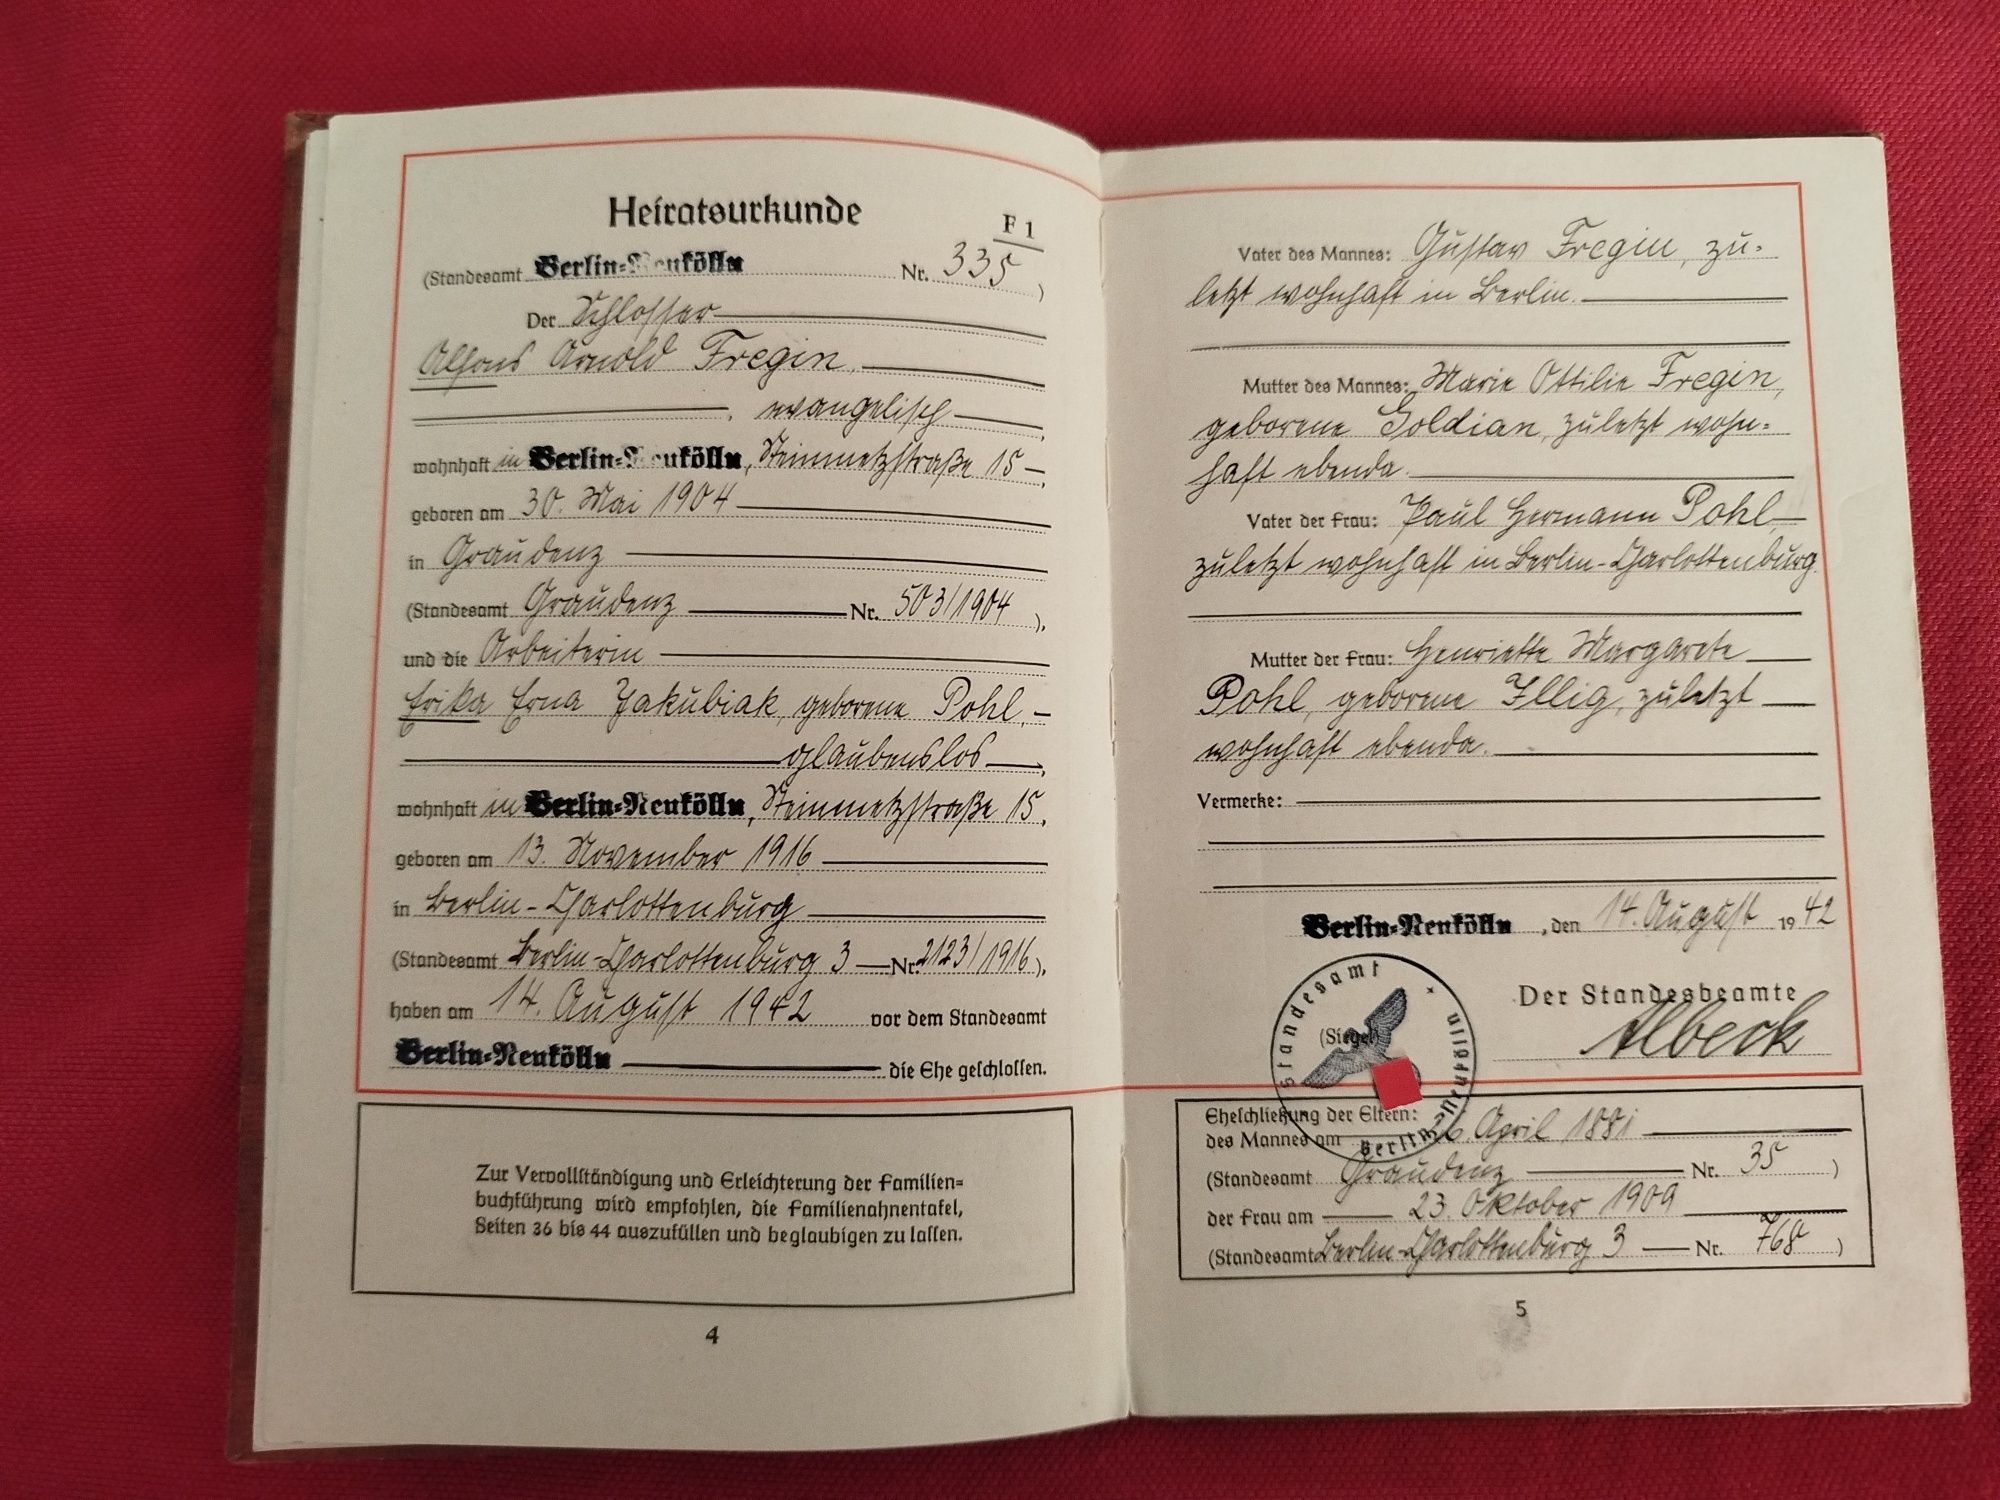 Heiratsurkunde
F 1
(Standesamt Berlin-Neukölln Nr. 335)
Der Schlosser
Alfons Arnold Fregin,
, evangelisch,
wohnhaft in Berlin-Neukölln, Steinmetzstraße 15,
geboren am 30. Mai 1904
in Graudenz
(Standesamt Graudenz Nr. 503/1904),
und die Arbeiterin
Erika Erna Jakubiak, geborene Pohl,
glaubenslos,
wohnhaft in Berlin-Neukölln, Steinmetzstraße 15,
geboren am 13. November 1916
in Berlin-Charlottenburg
(Standesamt Berlin-Charlottenburg 3 Nr. 2123/1916),
haben am 14. August 1942 vor dem Standesamt
Berlin-Neukölln die Ehe geschlossen.
Zur Vervollständigung und Erleichterung der Familien-
buchführung wird empfohlen, die Familienahnentafel,
Seiten 36 bis 44 auszufüllen und beglaubigen zu lassen.
4
Vater des Mannes: Gustav Fregin, zu-
letzt wohnhaft in Berlin.
Mutter des Mannes: Marie Ottilie Fregin,
geborene Goldian, zuletzt wohn-
haft ebenda.
Vater der Frau: Paul Hermann Pohl
zuletzt wohnhaft in Berlin-Charlottenburg
Mutter der Frau: Henriette Margarete
Pohl, geborene Illig, zuletzt
wohnhaft ebenda.
Vermerke:
Berlin-Neukölln, den 14. August 1942
Standesamt Berlin-Neukölln
(Siegel)
Der Standesbeamte
Albeck
Eheschließung der Eltern:
des Mannes am 26. April 1881
(Standesamt Graudenz Nr. 35)
der Frau am 23. Oktober 1909
(Standesamt Berlin-Charlottenburg 3 Nr. 768)
5